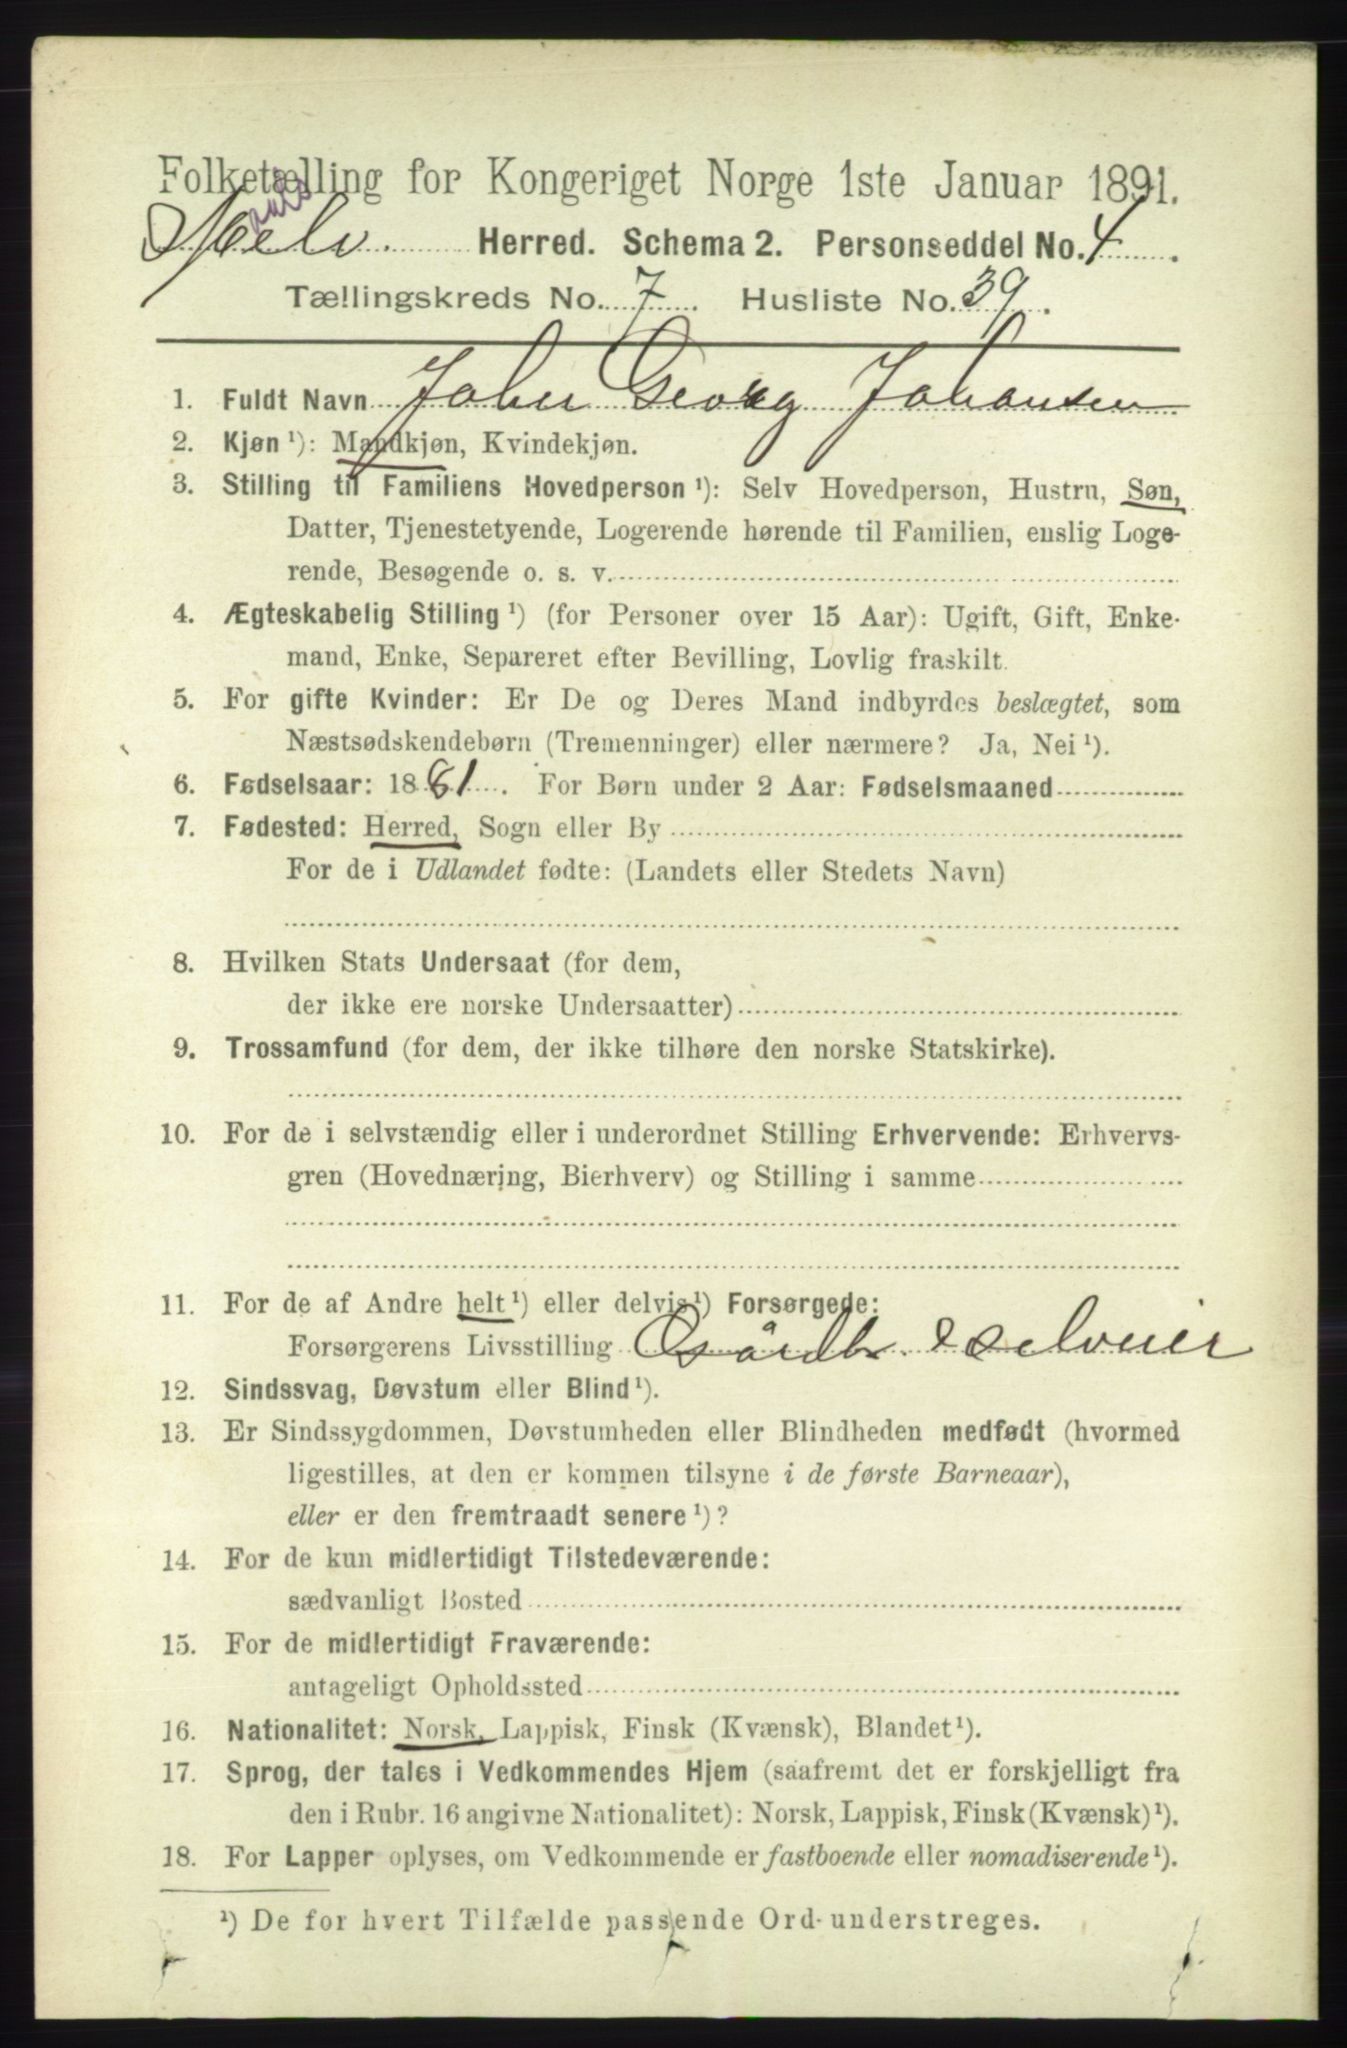 Folketælling for Kongeriget Norge 1ste Januar 1891.
Herred. Schema 2. Personseddel No. 4.
Tællingskreds No. 7. Husliste No. 39.
1. Fuldt Navn Johan Georg Johansen
2. Kjøn ¹): Mandkjøn, Kvindekjøn.
3. Stilling til Familiens Hovedperson ¹): Selv Hovedperson, Hustru, Søn,
Datter, Tjenestetyende, Logerende hørende til Familien, enslig Loge-
rende, Besøgende o. s. v.
4. Ægteskabelig Stilling ¹) (for Personer over 15 Aar): Ugift, Gift, Enke-
mand, Enke, Separeret efter Bevilling, Lovlig fraskilt.
5. For gifte Kvinder: Er De og Deres Mand indbyrdes beslægtet, som
Næstsødskendebørn (Tremenninger) eller nærmere? Ja, Nei ¹).
6. Fødselsaar: 1881. For Børn under 2 Aar: Fødselsmaaned
7. Fødested: Herred, Sogn eller By
For de i Udlandet fødte: (Landets eller Stedets Navn)
8. Hvilken Stats Undersaat (for dem,
der ikke ere norske Undersaatter)
9. Trossamfund (for dem, der ikke tilhøre den norske Statskirke).
10. For de i selvstændig eller i underordnet Stilling Erhvervende: Erhvervs-
gren (Hovednæring, Bierhverv) og Stilling i samme
11. For de af Andre helt ¹) eller delvis ¹) Forsørgede:
Forsørgerens Livsstilling Gårdbr. & Selveier
12. Sindssvag, Døvstum eller Blind ¹).
13. Er Sindssygdommen, Døvstumheden eller Blindheden medfødt (hvormed
ligestilles, at den er kommen tilsyne i de første Barneaar),
eller er den fremtraadt senere ¹)?
14. For de kun midlertidigt Tilstedeværende:
sædvanligt Bosted
15. For de midlertidigt Fraværende:
antageligt Opholdssted
16. Nationalitet: Norsk, Lappisk, Finsk (Kvænsk), Blandet ¹).
17. Sprog, der tales i Vedkommendes Hjem (saafremt det er forskjelligt fra
den i Rubr. 16 angivne Nationalitet): Norsk, Lappisk, Finsk (Kvænsk) ¹).
18. For Lapper oplyses, om Vedkommende er fastboende eller nomadiserende ¹).
¹) De for hvert Tilfælde passende Ord understreges.